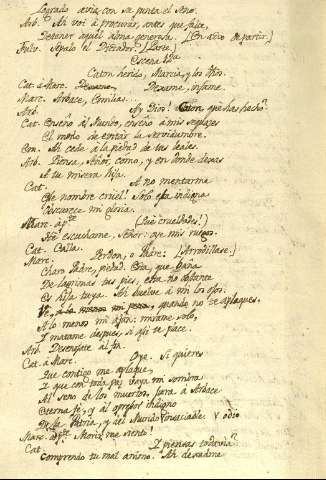 Logrado avia con su punta el seno.
Arb. Ahi voi à procurar, antes que salga,
Detener aquel alma generosa. (En acto de partir.)
Fulv. Sepalo el Dictador. (Parte.)
Escena
Caton herido, Marcia, y los dhos.
Cat. à Marc. Dexame, infame
Marc. Arbace, Emilia..
Arb. Ay Dios! que has hecho?
Cat. Enseño à Mundo, enseño à mis
El modo de evitar la servidumbre.
Em. Ah cede à la piedad de tus leales.
Arb. Piensa, Señor, como, y en donde dexas
A tu misera hija.
Cat. A no mentarme
Ese nombre cruel! Solo esta indigna
Obscurece mi gloria.
Marc. apte. (Què crueldades!)
escuchame, Señor: oye mis ruegos.
Cat. Calla.
Marc. Perdon, o Padre: (Arrodillase.)
Charo Padre, piedad. Esta, que baña
De lagrimas tus pies, esta no obstante
Es hija tuya. Ah buelve à mi los ojos:
quando no te aplaques.
A lo menos mi afan: mirame solo,
I matame despues, si assi te place.
Arb. Desenojate al fin.
Cat. à Marc. Oye. Si quieres
Que contigo me aplaque,
I que con paz baja mi sombra
Al seno de los muertos, jura à Arbace
Eterna fe, y al opresor indigno
De la Patria, y del Mundo y odio
Marc. apte. Morir me siento!
Cat. I piensas todavia?
Comprendo tu mal animo. Ah dexadme